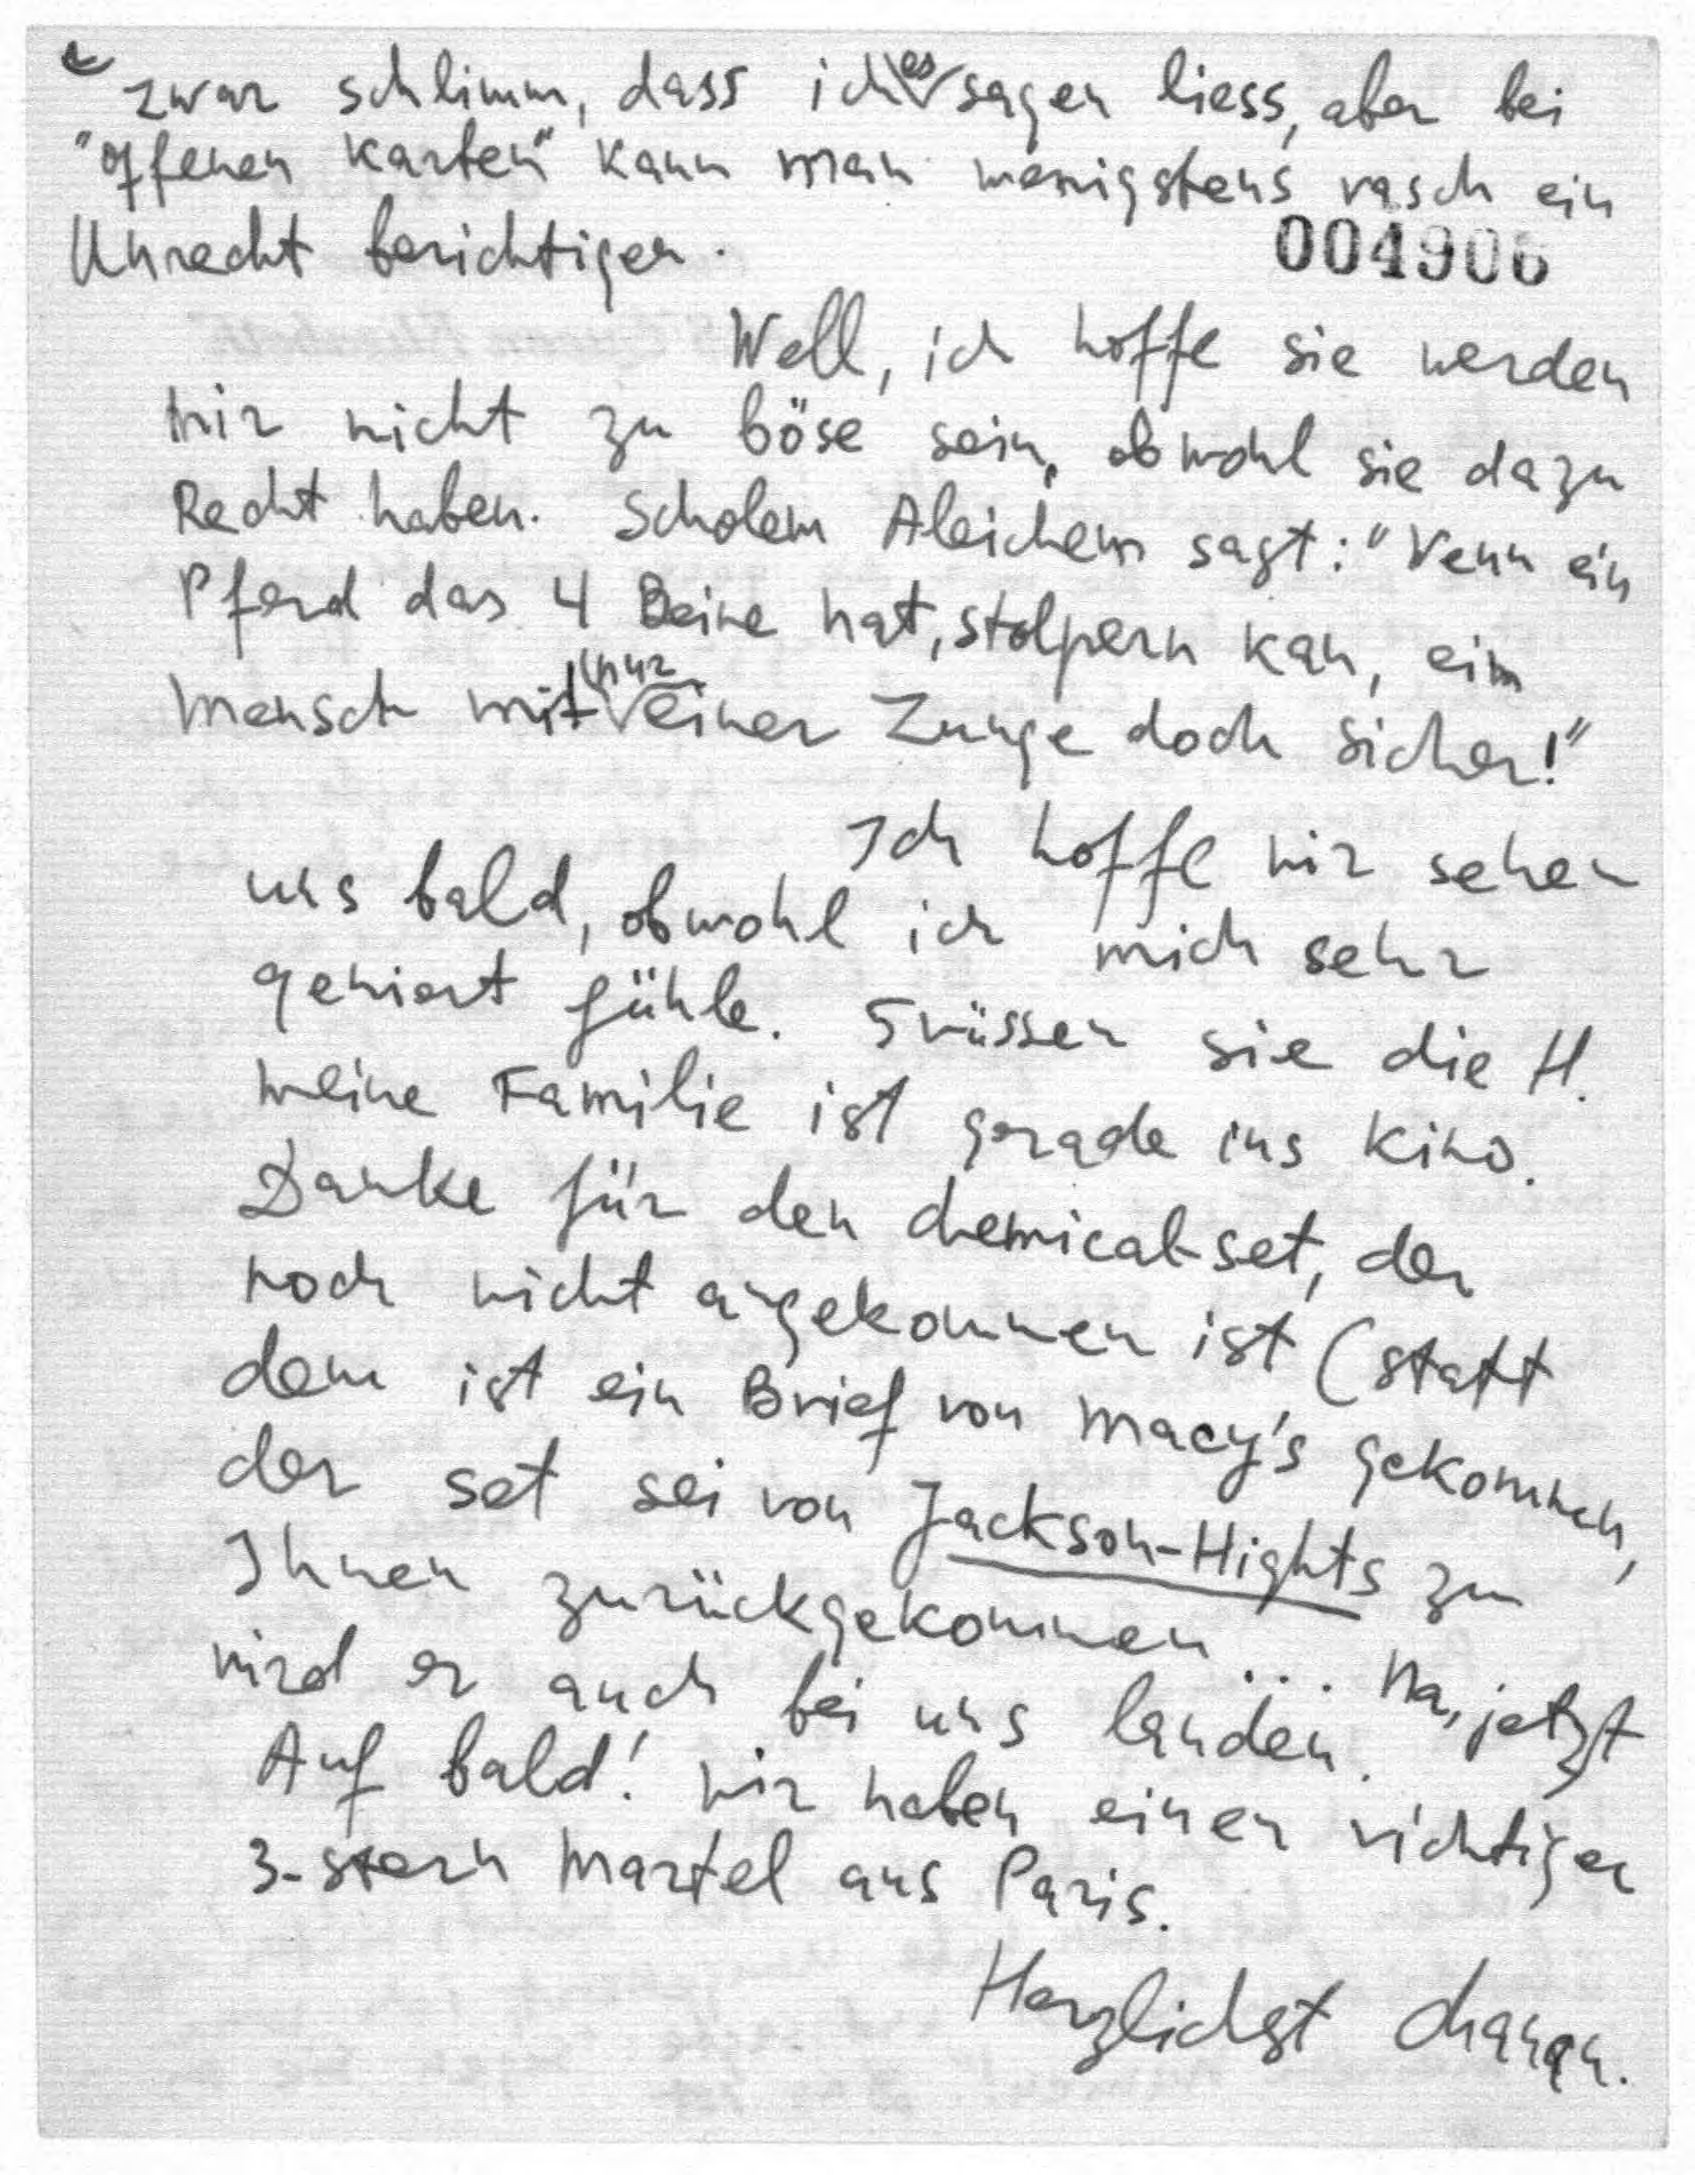 zwar schlimm, dass ich es sagen liess, aber bei
"offenen Karten" kann man wenigstens rasch ein
Unrecht berichtigen.
004906
Well, ich hoffe sie werden
mir nicht zu böse sein, obwohl sie dazu
Recht haben. Scholem Aleichem sagt: "Venn ein
Pferd das 4 Beine hat, stolpern kan, ein
Mensch mit nur einer Zunge doch sicher!"
Ich hoffe wir sehen
uns bald, obwohl ich mich sehr
geniert fühle. Grüssen sie die H.
Meine Familie ist gerade ins Kino.
Danke für den chemical-set, der
noch nicht angekommen ist (statt
dem ist ein Brief von Macy's gekommen,
der set sei von Jackson-Hights zu
Ihnen zurückgekommen... Na, jetzt
wird er auch bei uns landen.
Auf bald! Wir haben einen richtigen
3-stern Martel aus Paris.
Herzlichst Chanan.